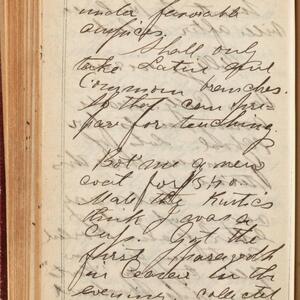 under favorable
auspices.
Shall only
take Latin and
Common branches.
So they can pre-
pare for teaching.
Bot me a new
coat for $
Made the
think I was a
Got the
first
in the
evening collected